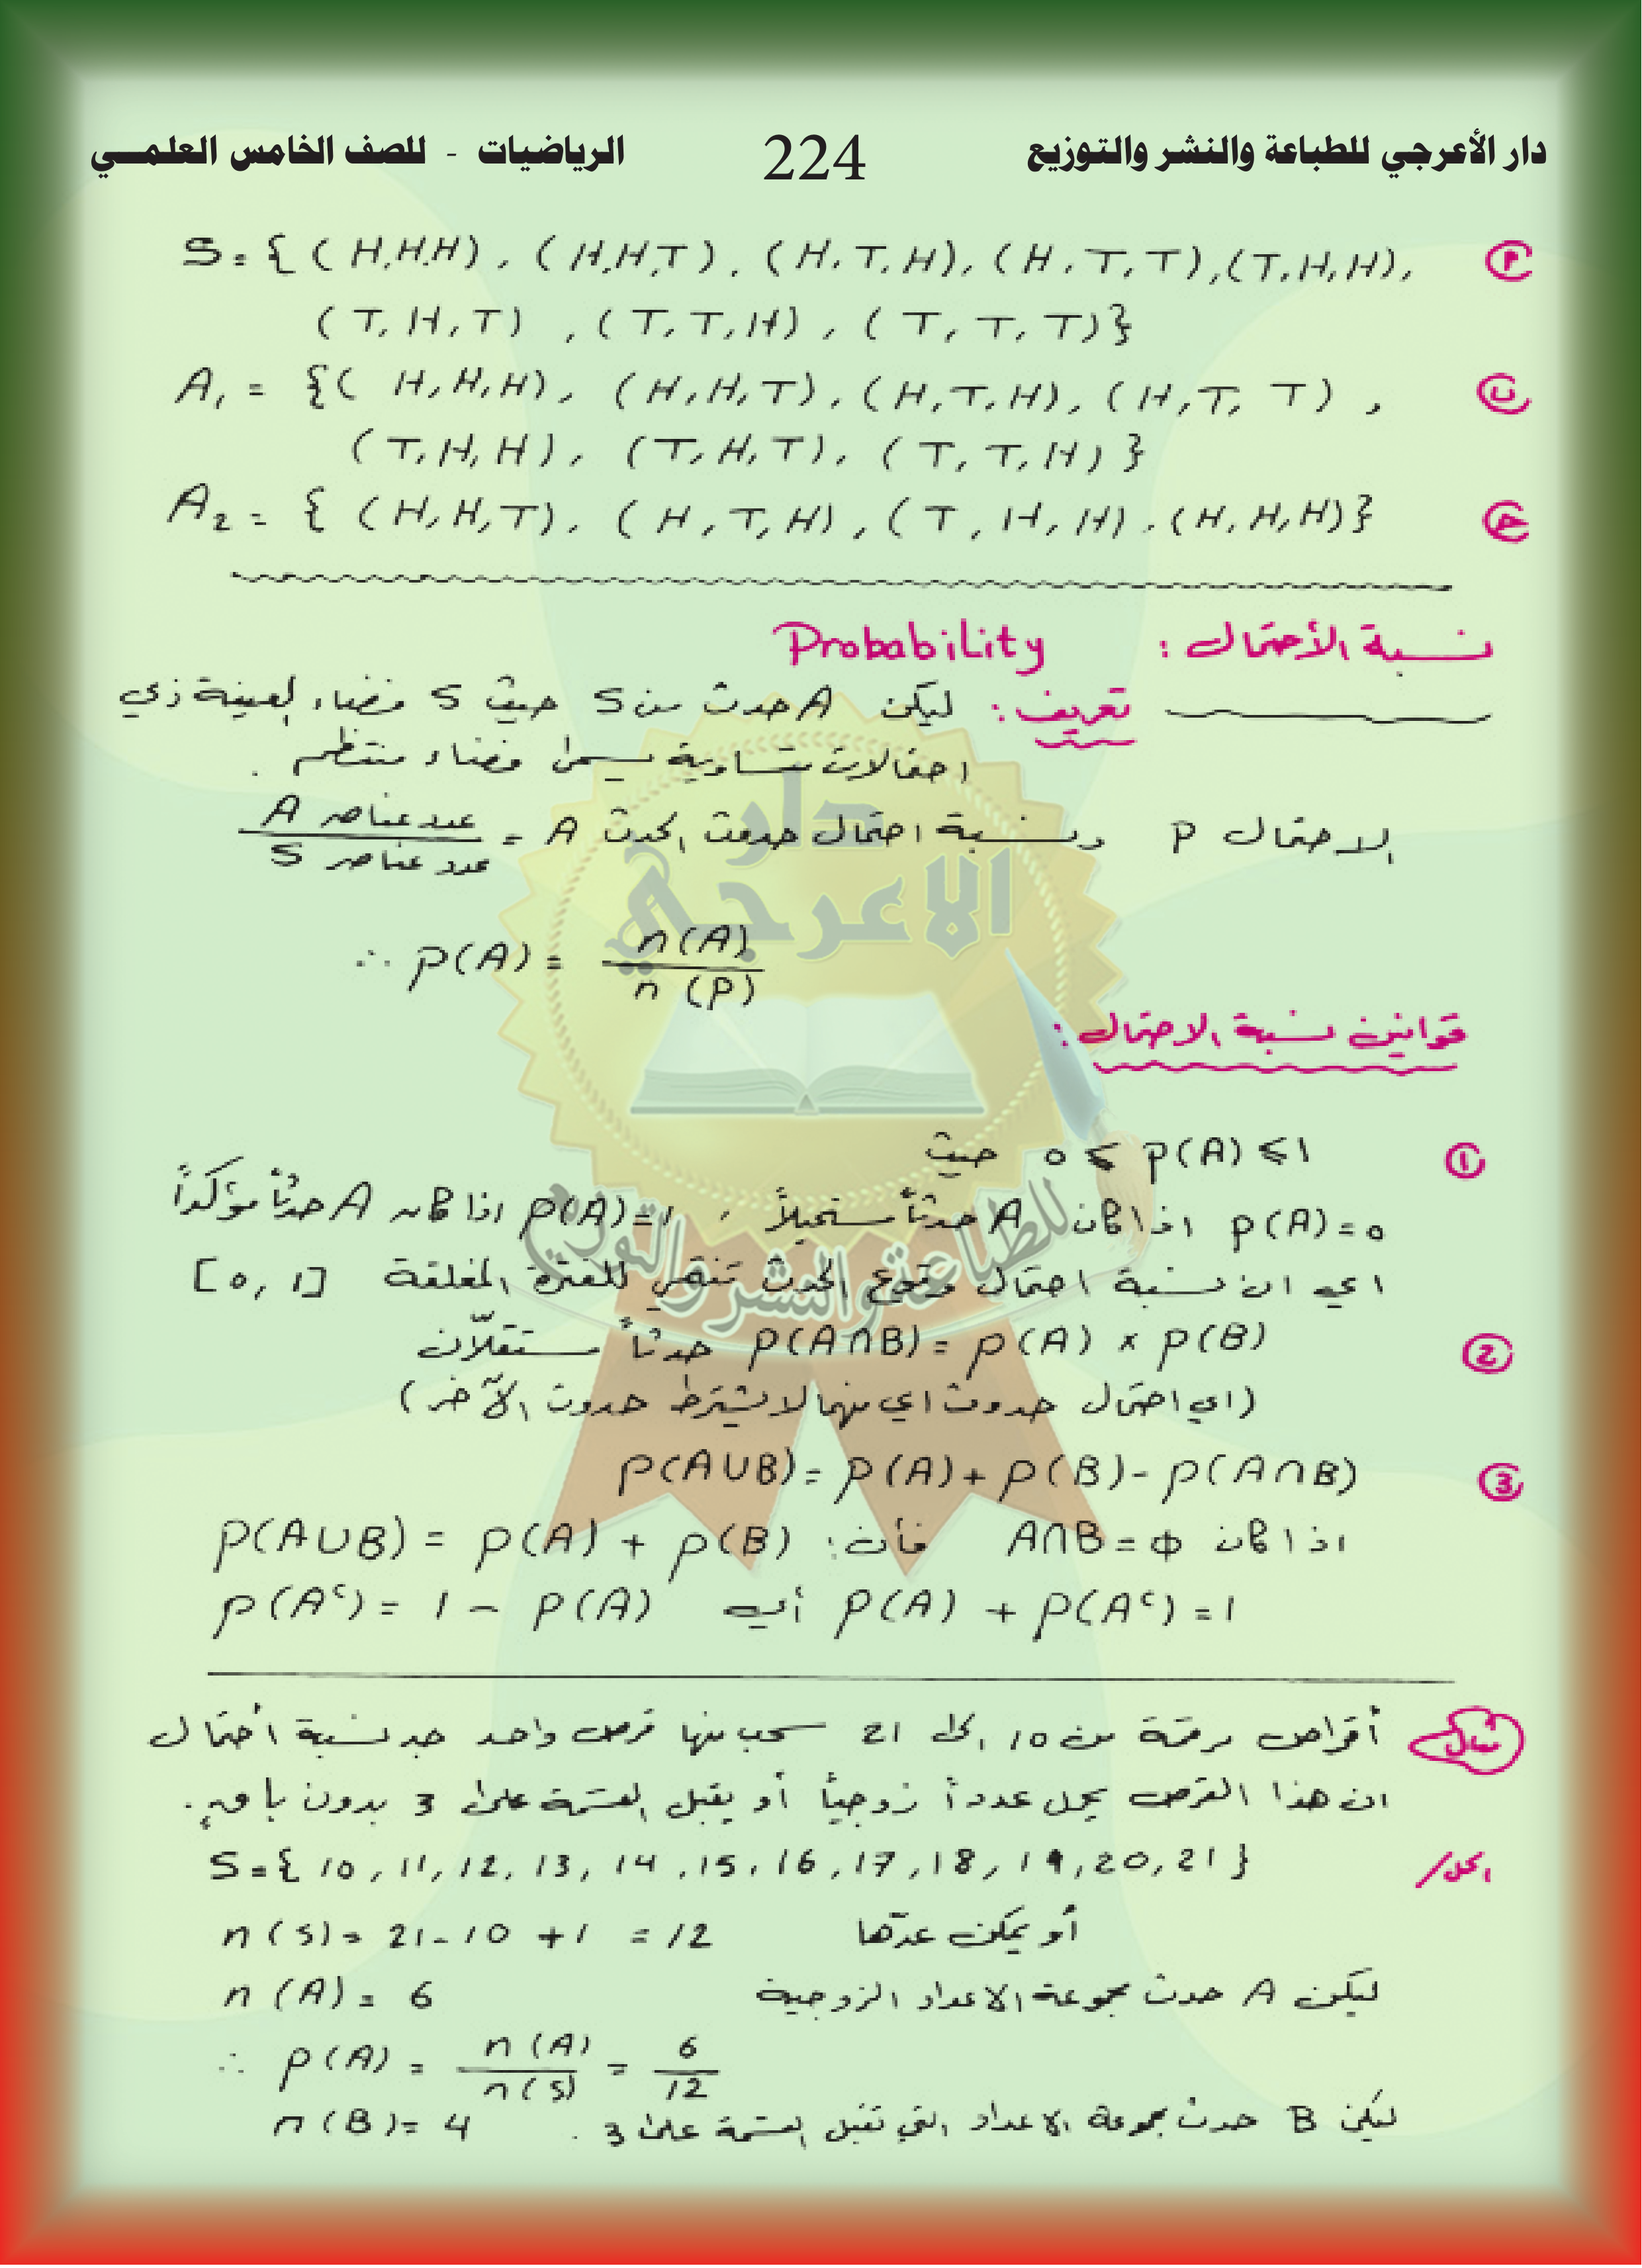 دار الأعرجي للطباعة والنشر والتوزيع 224 الرياضيات - للصف الخامس العلمي
Ⓟ S = { (H,H,H), (H,H,T), (H,T,H), (H,T,T), (T,H,H),
(T,H,T), (T,T,H), (T,T,T) }
ب A₁ = { (H,H,H), (H,H,T), (H,T,H), (H,T,T),
(T,H,H), (T,H,T), (T,T,H) }
ج A₂ = { (H,H,T), (H,T,H), (T,H,H), (H,H,H) }
نسبة الأحتمال : Probability
تعريف : ليكن A حدث من S حيث S فضاء العينة ذي
احتمالات متساوية يسمى فضاء منتظم .
الاحتمال P ونسبة احتمال حدوث الحدث A = عدد عناصر A / عدد عناصر S
∴ P(A) = n(A) / n(P)
قوانين نسبة الاحتمال :
① 0 ≤ P(A) ≤ 1 حيث
P(A)=0 اذا كان A حدثاً مستحيلاً ، P(A)=1 اذا كان A حدثاً مؤكداً
اي ان نسبة احتمال وقوع الحدث تنتمي للفترة المغلقة [0,1]
② P(A∩B) = P(A) × P(B) حدثاً مستقلّان
(اي احتمال حدوث اي منهما لا يشترط حدوث الآخر)
③ P(A∪B) = P(A) + P(B) - P(A∩B)
اذا كان A∩B = Φ فأن : P(A∪B) = P(A) + P(B)
P(A) + P(Aᶜ) = 1 أي P(Aᶜ) = 1 - P(A)
مثال أقراص مرقمة من 10 الى 21 سحب منها قرص واحد جد نسبة أحتمال
ان هذا القرص يحمل عدداً زوجياً أو يقبل القسمة على 3 بدون باقٍ .
الحل/ S = { 10, 11, 12, 13, 14, 15, 16, 17, 18, 19, 20, 21 }
n(S) = 21 - 10 + 1 = 12 أو يمكن عدّها
ليكن A حدث مجموعة الاعداد الزوجية n(A) = 6
∴ P(A) = n(A) / n(S) = 6 / 12
ليكن B حدث مجموعة الاعداد التي تقبل القسمة على 3 . n(B) = 4
دار
الاعرجي
للطباعة والنشر والتوزيع